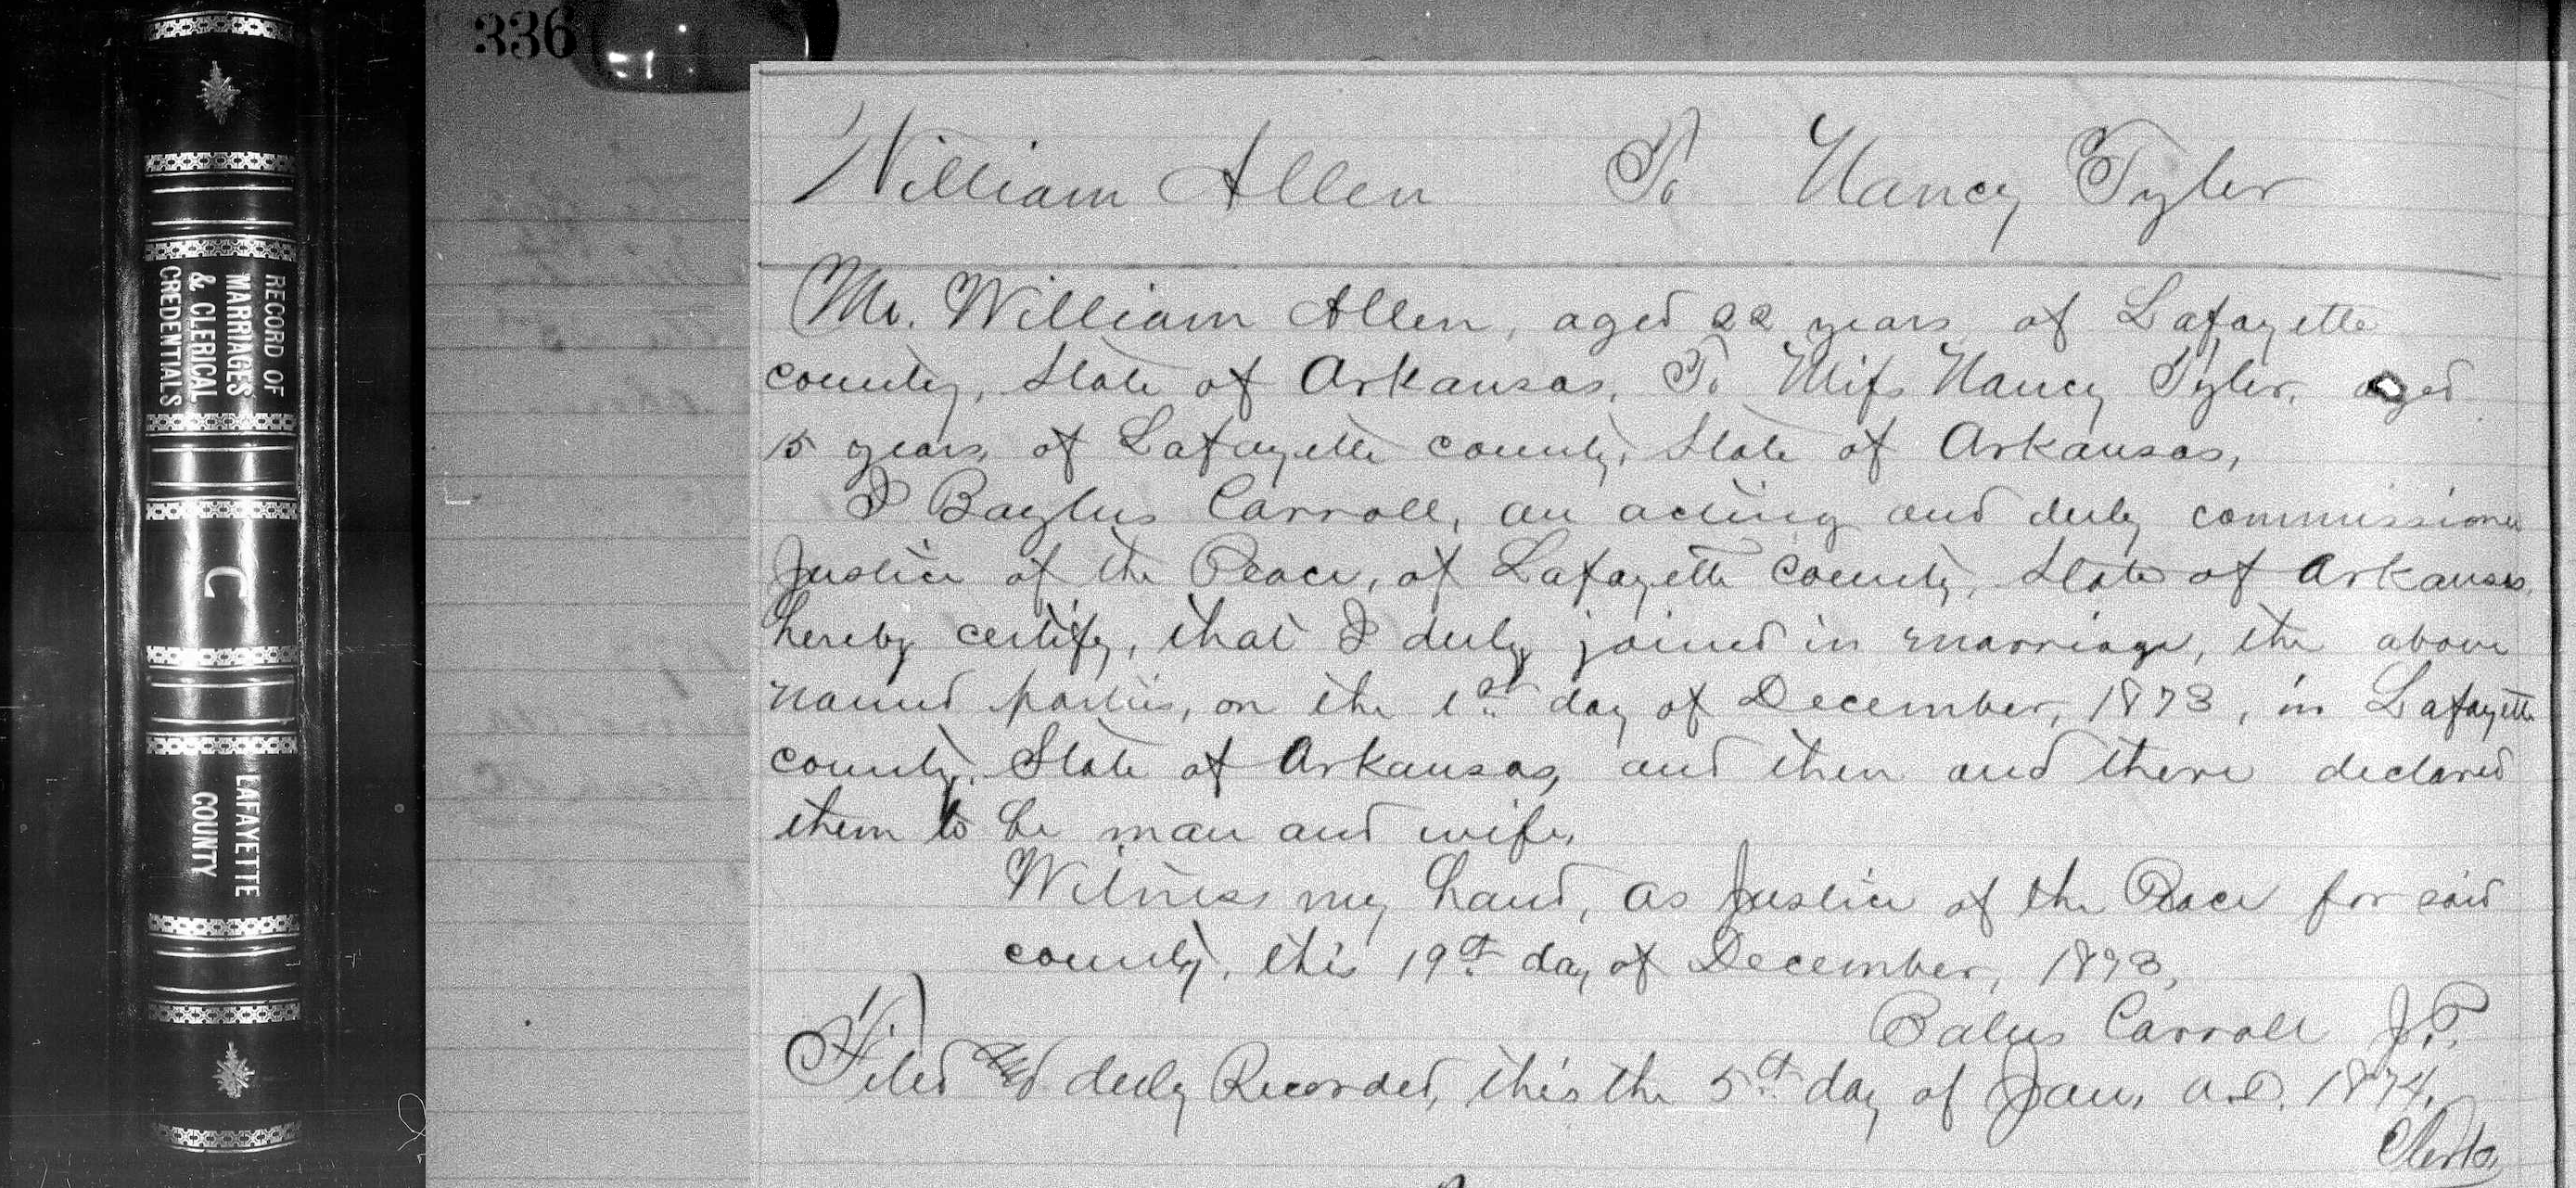 RECORD OF
MARRIAGES
& CLERICAL
CREDENTIALS
C
LAFAYETTE
COUNTY
336
William Allen To Nancy Tyler
Mr. William Allen, aged 22 years, of Lafayette
county, State of Arkansas, To Miss Nancy Tyler, aged
15 years, of Lafayette county, State of Arkansas,
I Baylus Carroll, an acting and duly commissioned
Justice of the Peace, of Lafayette County, State of Arkansas,
hereby certify, that I duly joined in marriage, the above
named parties, on the 1st day of December, 1873, in Lafayette
county, State of Arkansas, and then and there declared
them to be man and wife,
Witness my hand, as Justice of the Peace for said
county, this 19th day of December, 1873,
Balus Carroll J.P.
Filed and duly Recorded, this the 5th day of Jan, A.D. 1874,
Clerk,